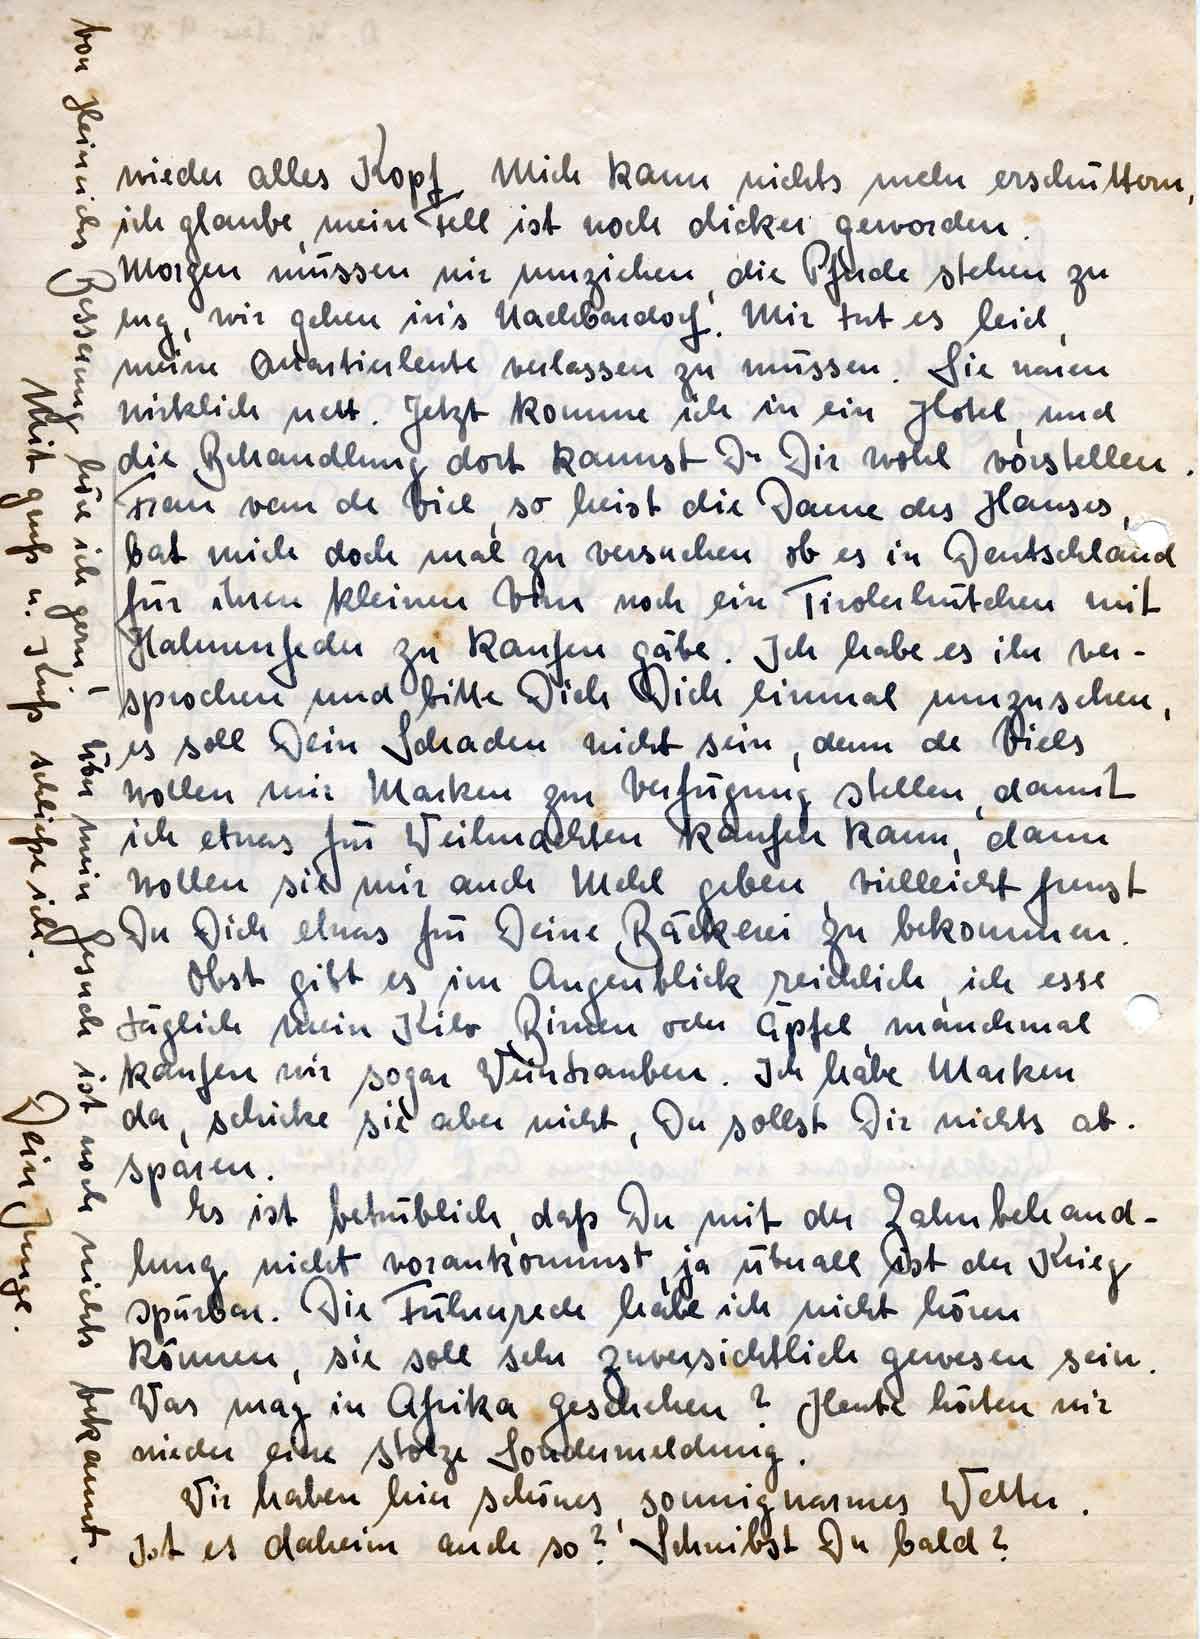 wieder alles Kopf. Mich kann nichts mehr erschüttern,
ich glaube, mein Fell ist noch dicker geworden.
Morgen müssen wir umziehen, die Pferde stehen zu
eng, wir gehen in's Nachbardorf. Mir tut es leid,
meine Quartierleute verlassen zu müssen. Sie waren
wirklich nett. Jetzt komme ich in ein Hotel, und
die Behandlung dort kannst Du Dir wohl vorstellen.
Frau van de Viel, so heist die Dame des Hauses,
bat mich doch mal zu versuchen ob es in Deutschland
für ihren kleinen Wim noch ein Tirolerhütchen mit
Hahnenfeder zu kaufen gäbe. Ich habe es ihr ver-
sprochen und bitte Dich Dich einmal umzusehen,
es soll Dein Schaden nicht sein, denn de Viels
wollen mir Marken zur Verfügung stellen, damit
ich etwas für Weihnachten kaufen kann, dann
wollen sie mir auch Mehl geben, vielleicht freust
Du Dich etwas für Deine Bäckerei zu bekommen.
Obst gibt es im Augenblick reichlich, ich esse
täglich mein Kilo Birnen oder Äpfel, manchmal
kaufen wir sogar Weintrauben. Ich habe Marken
da, schicke sie aber nicht, Du sollst Dir nichts ab-
sparen.
Es ist betrüblich, daß Du mit der Zahnbehand-
lung nicht vorankommst, ja überall ist der Krieg
spürbar. Die Führerrede habe ich nicht hören
können, sie soll sehr zuversichtlich gewesen sein.
Was mag in Afrika geschehen? Heute hörten wir
wieder eine stolze Sondermeldung.
Wir haben hier schönes, sonnigwarmes Wetter.
Ist es daheim auch so? Schreibst Du bald?
Von Heinrichs Besserung höre ich gern, über mein Gesuch ist noch nichts bekannt.
Mit Gruß u. Kuß schließe ich.
Dein Junge.